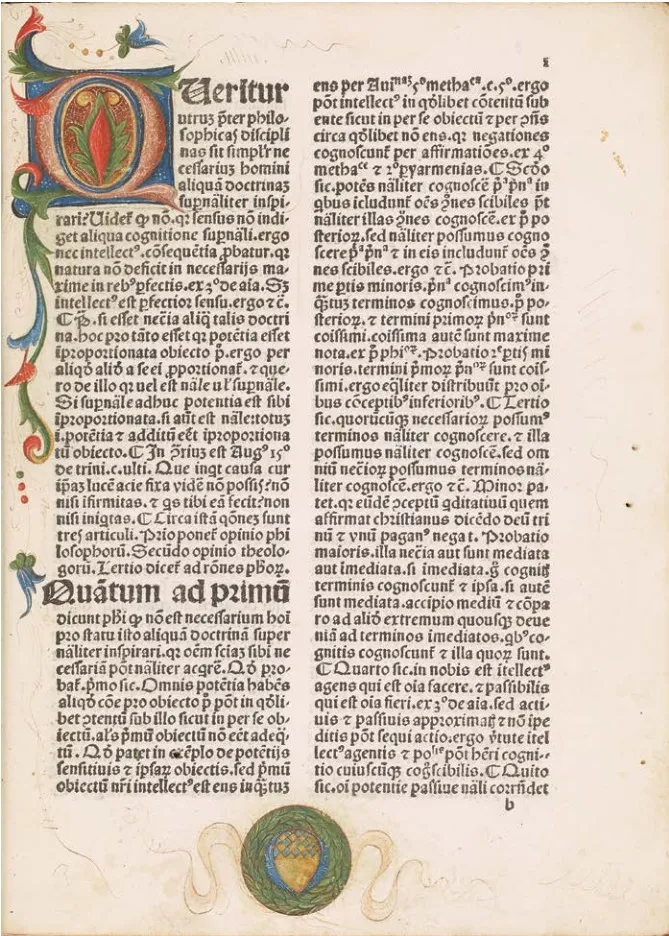 I
Ueritur
utruꝫ p̄ter philo-
sophicas discipli
nas sit simplr̄ ne
cessariuꝫ homini
aliquā doctrinaꝫ
suꝑnāliter inspi-
rari? Uidet᷑ ꝙ nō.qꝛ sensus nō indi-
get aliqua cognitione suꝑnāli.ergo
nec intellectꝰ.cōsequētia ꝓbatur.qꝛ
natura nō deficit in necessarijs ma-
xime in rebꝰ ꝑfectis.ex 3º de aīa. Sꝫ
intellectꝰ est ꝑfectior sensu.ergo ⁊c̄.
¶ P̄. si esset nec̄ia aliq̄ talis doctri
na.hoc pro tāto esset qꝛ potētia esset
īproportionata obiecto p̄.ergo per
aliqd̄ aliō a se ei ꝓportionat᷑. ⁊ que-
ro de illo qꝛ uel est nāle uł suꝑnāle.
Si suꝑnāle adhuc potentia est sibi
īproportionata.si aūt est nāle:totuꝫ
i.potētia ⁊ additū eēt īproportiona
tū obiecto. ¶ In ꝯ̄rius est Augꝰ 15º
de trini.c.ulti. Que inqt causa cur
ip̄aꝫ lucē acie fixa vidē nō possis? nō
nisi īfirmitas. ⁊ qs tibi eā fecit? non
nisi iniqtas. ¶ Circa istā qōneꝫ sunt
tres articuli. Prīo ponet᷑ opinio phi
losophorū. Secūdo opinio theolo-
gorū. Tertio dicet᷑ ad rōnes pħoꝝ.
Quātum ad primū
dicunt pħi ꝙ nō est necessarium hoī
pro statu isto aliquā doctrinā super
nāliter inspirari.qꝛ oēm sciaꝫ sibi ne
cessariā pōt nāliter acqrē. Qō pro-
bat᷑.pͥmo sic. Omnis potētia habēs
aliqd̄ cōe pro obiecto p̄ pōt in qōli-
bet ꝯtentū sub illo sicut in per se ob-
iectū.als pͥmū obiectū nō eēt adeq̄-
tū. Qō patet in exēplo de potētijs
sensitiuis ⁊ ipsaꝝ obiectis.sed pͥmū
obiectū nr̄i intellectꝰ est ens inqꝫtuꝫ
ens per Auiⁿᵃꝫ 5º methaᶜᵃ.c.5º. ergo
pōt intellectꝰ in qōlibet cōtentū sub
ente sicut in per se obiectū ⁊ per ꝯn̄s
circa qōlibet nō ens.qꝛ negationes
cognoscunt᷑ per affirmatiōes.ex 4º
methaᶜᵉ ⁊ 2º ꝑyarmenias. ¶ Scd̄o
sic.potēs nāliter cognoscē p̄ᵃ pͥnᵃ in
qbus icludunt᷑ oēs ꝯ̄nes scibiles pōt
nāliter illas ꝯ̄nes cognoscē.ex p̄ po
sterioꝝ.sed nāliter possumus cogno
scere p̄ᵃ pͥnᵃ ⁊ in eis includunt᷑ oēs ꝯ̄
nes scibiles.ergo ⁊c̄. Probatio pri
me ptis minoris. pͥnᵃ cognoscimꝰ in-
qꝫtuꝫ terminos cognoscimus.p̄ po-
sterioꝝ. ⁊ termini primoꝝ pͥnᵒꝝ sunt
cōissimi.coissima autē sunt maxime
nota.ex p̄ phiᵒꝝ. Probatio 2ᵉ ptis mi
noris.termini pͥmoꝝ pͥnᵒꝝ sunt coīs-
simi.ergo eq̄liter distribuūt᷑ pro oī-
bus cōceptibꝰ inferioribꝰ. ¶ Tertio
sic.quorūcūqꝫ necessarioꝝ possumꝰ
terminos nāliter cognoscere. ⁊ illa
possumus nāliter cognoscē.sed om
niū nec̄ioꝝ possumus terminos nā-
liter cognoscē.ergo ⁊c̄. Minor pa-
tet.qꝛ eūdē ꝯceptū qditatiuū quem
affirmat christianus dicēdo deū tri
nū ⁊ vnū paganꝰ negat. Probatio
maioris.illa nec̄ia aut sunt mediata
aut īmediata.si īmediata.g̊ cognitꝭ
terminis cognoscunt᷑ ⁊ ipsa.si autē
sunt mediata.accipio mediū ⁊ cōpa
ro ad aliō extremum quousqꝫ deue
niā ad terminos īmediatos.qbꝰ co-
gnitis cognoscunt᷑ ⁊ illa quoꝝ sunt.
¶ Quarto sic.in nobis est ītellectꝰ
agens qui est oīa facere. ⁊ passibilis
qui est oīa fieri.ex 3º de aīa.sed acti-
uis ⁊ passiuis approximatꝭ ⁊ nō īpe
ditis pōt sequi actio.ergo v̄tute ītel
lectꝰ agentis ⁊ poˡⁱˢ pōt hēri cogni-
tio cuiuscūqꝫ cog̊scibilis. ¶ Quīto
sic.oī potentie passiue nāli corrn̄det
b